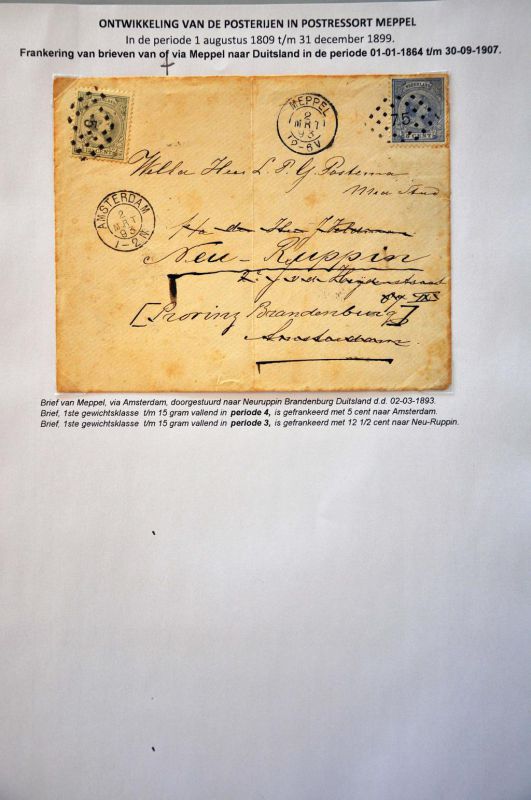 ONTWIKKELING VAN DE POSTERIJEN IN POSTRESSORT MEPPEL
In de periode 1 augustus 1809 t/m 31 december 1899.
Frankering van brieven van of via Meppel naar Duitsland in de periode 01-01-1864 t/m 30-09-1907.
MEPPEL
2
MRT
93
75
AMSTERDAM
2
MRT
93
1-2N
L. P. G. Postema
p/a den Heer
Neu-Ruppin
[Provinz Brandenburg]
Amsterdam
Brief van Meppel, via Amsterdam, doorgestuurd naar Neuruppin Brandenburg Duitsland d.d. 02-03-1893.
Brief, 1ste gewichtsklasse t/m 15 gram vallend in periode 4, is gefrankeerd met 5 cent naar Amsterdam.
Brief, 1ste gewichtsklasse t/m 15 gram vallend in periode 3, is gefrankeerd met 12 1/2 cent naar Neu-Ruppin.